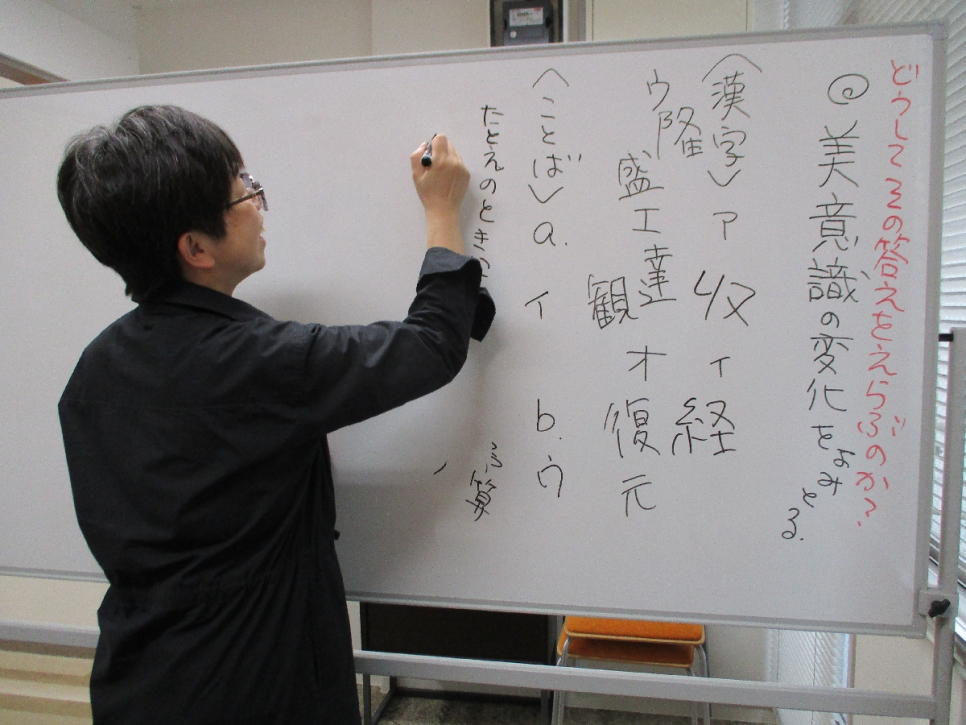 どうしてその答えをえらぶのか?
◎美意識の変化をよみとる.
〈漢字〉ア 収 イ 経
ウ 隆盛 エ 達観 オ 復元
〈ことば〉a. イ b. ウ
たとえのとき
算